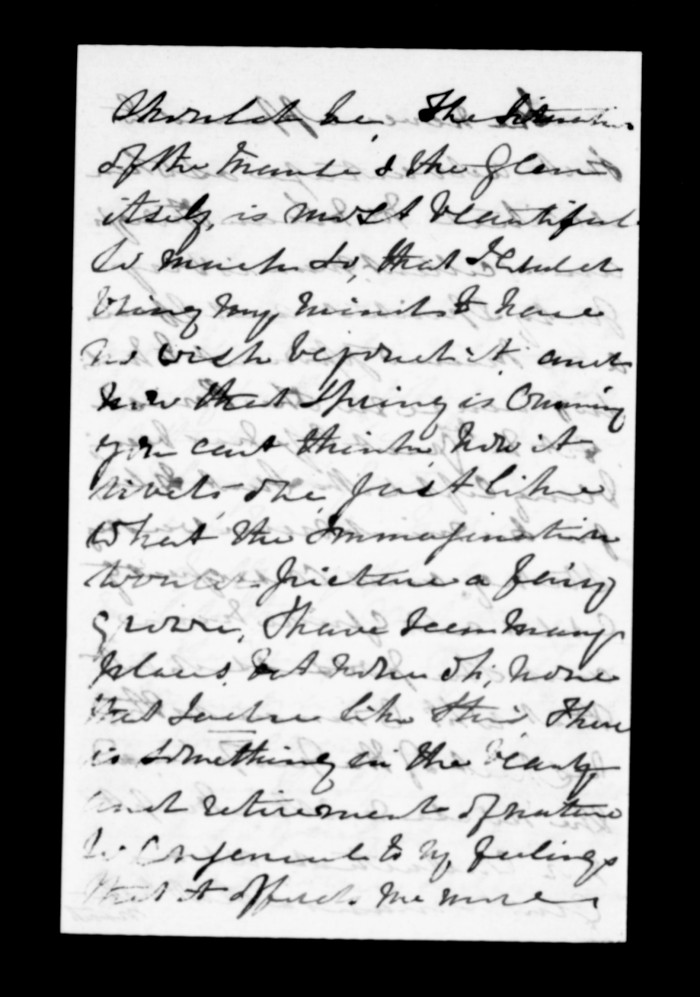 should be, The situation
of the Manse & the Glen
itself, is most beautiful
so much so, that I could
bring my mind to have
no wish beyond it and
now that Spring is Coming
you cant think, how it
rivets one, just like
what, the Immagination
would picture a fairy
grove, I have seen many
places, but none oh, none
that I like this, There
is something in the beauty
and retirement of nature
so Congenial to my feelings
that it affects me more